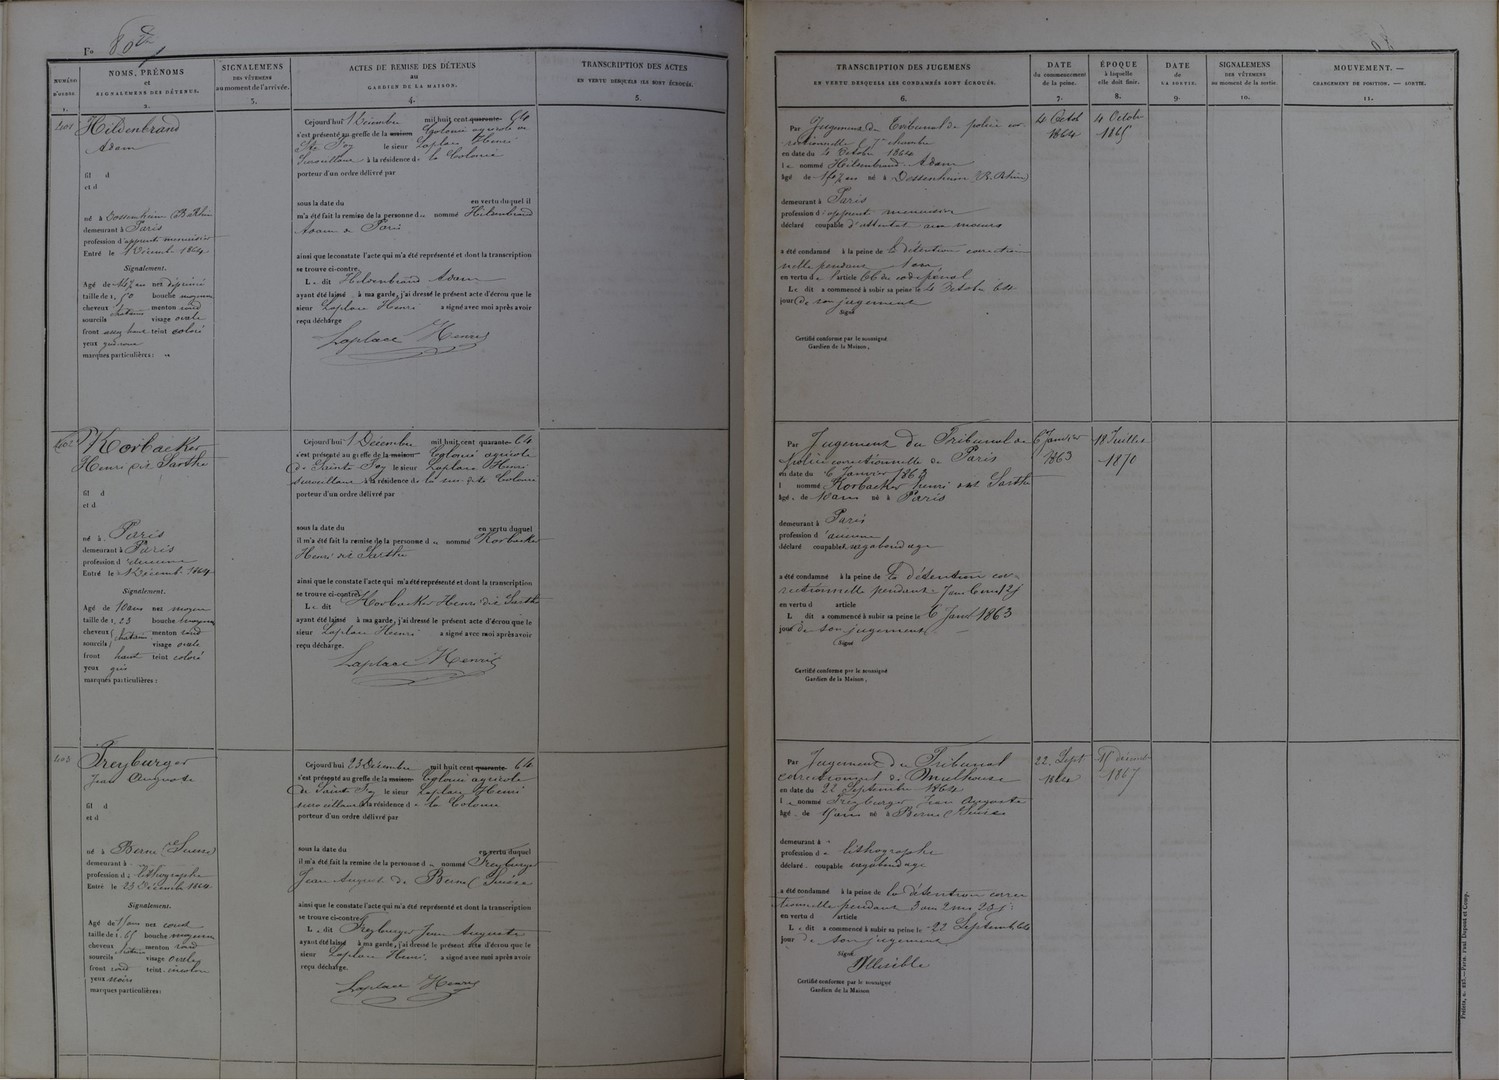 Fo 80
NUMÉRO D'ORDRE
1.
NOMS, PRÉNOMS
et
SIGNALEMENS DES DÉTENUS.
2.
SIGNALEMENS
DES VÊTEMENS
au moment de l'arrivée.
3.
ACTES DE REMISE DES DÉTENUS
au
GARDIEN DE LA MAISON.
4.
TRANSCRIPTION DES ACTES
EN VERTU DESQUELS ILS SONT ÉCROUÉS.
5.
401
Hildenbrand
Adam
fil d
et d
né à Dossenheim (B. Rhin
demeurant à Paris
profession d'apprenti menuisier
Entré le 1 Décembre 1864
Signalement.
Agé de nez
taille de 1, 50 bouche moyenne
cheveux chatain menton rond
sourcils visage ovale
front teint coloré
yeux
marques particulières :
Cejourd'hui 1 Décembre mil huit cent quarante 64
s'est présenté au greffe de la maison Colonie agricole de
Ste Foy le sieur Laplace Henri
Surveillant à la résidence de la Colonie
porteur d'un ordre délivré par
sous la date du en vertu duquel il
m'a été fait la remise de la personne d nommé Hildenbrand
Adam de Paris
ainsi que le constate l'acte qui m'a été représenté et dont la transcription
se trouve ci-contre.
Le dit Hildenbrand Adam
ayant été laissé à ma garde, j'ai dressé le présent acte d'écrou que le
sieur Laplace Henri a signé avec moi après avoir
reçu décharge
Laplace Henri
402
Korbacker
Henri dit Sarthe
fil d
et d
né à Paris
demeurant à Paris
profession d aucune
Entré le 1 Décemb. 1864
Signalement.
Agé de 10 ans nez moyen
taille de 1, 23 bouche moyenne
cheveux chatain menton rond
sourcils visage ovale
front haut teint coloré
yeux gris
marques particulières :
Cejourd'hui 1 Décembre mil huit cent quarante 64
s'est présenté au greffe de la maison Colonie agricole
de Sainte Foy le sieur Laplace Henri
surveillant à la résidence de la Colonie
porteur d'un ordre délivré par
sous la date du en vertu duquel
il m'a été fait la remise de la personne d nommé Korbacker
Henri dit Sarthe
ainsi que le constate l'acte qui m'a été représenté et dont la transcription
se trouve ci-contre.
Le dit Korbacker Henri dit Sarthe
ayant été laissé à ma garde, j'ai dressé le présent acte d'écrou que le
sieur Laplace Henri a signé avec moi après avoir
reçu décharge.
Laplace Henri
403
Freyburger
Jean Auguste
fil d
et d
né à Berne (Suisse)
demeurant à
profession d lithographe
Entré le 23 Décembre 1864
Signalement.
Agé de nez court
taille de 1, 65 bouche moyenne
cheveux chatain menton rond
sourcils visage ovale
front rond teint
yeux noirs
marques particulières :
Cejourd'hui 23 Décembre mil huit cent quarante 64
s'est présenté au greffe de la maison Colonie agricole
de Sainte Foy le sieur Laplace Henri
surveillant à la résidence d la Colonie
porteur d'un ordre délivré par
sous la date du en vertu duquel
il m'a été fait la remise de la personne d nommé Freyburger
Jean August de Berne (Suisse
ainsi que le constate l'acte qui m'a été représenté et dont la transcription
se trouve ci-contre.
Le dit Freyburger Jean Auguste
ayant été laissé à ma garde, j'ai dressé le présent acte d'écrou que le
sieur Laplace Henri, a signé avec moi après avoir
reçu décharge.
Laplace Henri
TRANSCRIPTION DES JUGEMENS
EN VERTU DESQUELS LES CONDAMNÉS SONT ÉCROUÉS.
6.
DATE
du commencement
de la peine.
7.
ÉPOQUE
à laquelle
elle doit finir.
8.
DATE
de
LA SORTIE.
9.
SIGNALEMENS
DES VÊTEMENS
au moment de la sortie.
10.
MOUVEMENT. —
CHANGEMENT DE POSITION. — SORTIE.
11.
Par Jugement du Tribunal de police cor
rectionnelle 7e chambre
en date du 4 Octobre 1864
le nommé Hildenbrand Adam
âgé de né à Dossenheim (B. Rhin)
demeurant à Paris
profession d'apprenti menuisier
déclaré coupable d'attentat aux moeurs
a été condamné à la peine de la détention correction
nelle pendant 1 an
en vertu de l'article 66 du code pénal
Le dit a commencé à subir sa peine le 4 Octobre 64
jour de son jugement
Signé
Certifié conforme par le soussigné
Gardien de la Maison,
4 Octob
1864
4 Octob
1865
Par Jugement du Tribunal de
police correctionnelle de Paris
en date du 6 Janvier 1863
l nommé Korbacker henri dit Sarthe
âgé de 10 ans né à Paris
demeurant à Paris
profession d'aucune
déclaré coupable vagabondage
a été condamné à la peine de la détention cor-
rectionnelle pendant 7 ans 6 mois 12 j
en vertu d article
L dit a commencé à subir sa peine le 6 Janv 1863
jour de son jugement
Signé
Certifié conforme par le soussigné
Gardien de la Maison,
6 Janvier
1863
18 Juillet
1870
Par Jugement du Tribunal
correctionnel de Mulhouse
en date du 22 Septembre 1864
le nommé Freyburger Jean Auguste
âgé de né à Berne (Suisse
demeurant à
profession d lithographe
déclaré coupable vagabondage
a été condamné à la peine de la détention correc
tionnelle pendant 3 ans 2 m
en vertu d article
Le dit a commencé à subir sa peine le 22 Septemb. 64
jour de son jugement
Signé
Illisible
Certifié conforme par le soussigné
Gardien de la Maison
22. Sept
1864
décemb
1867